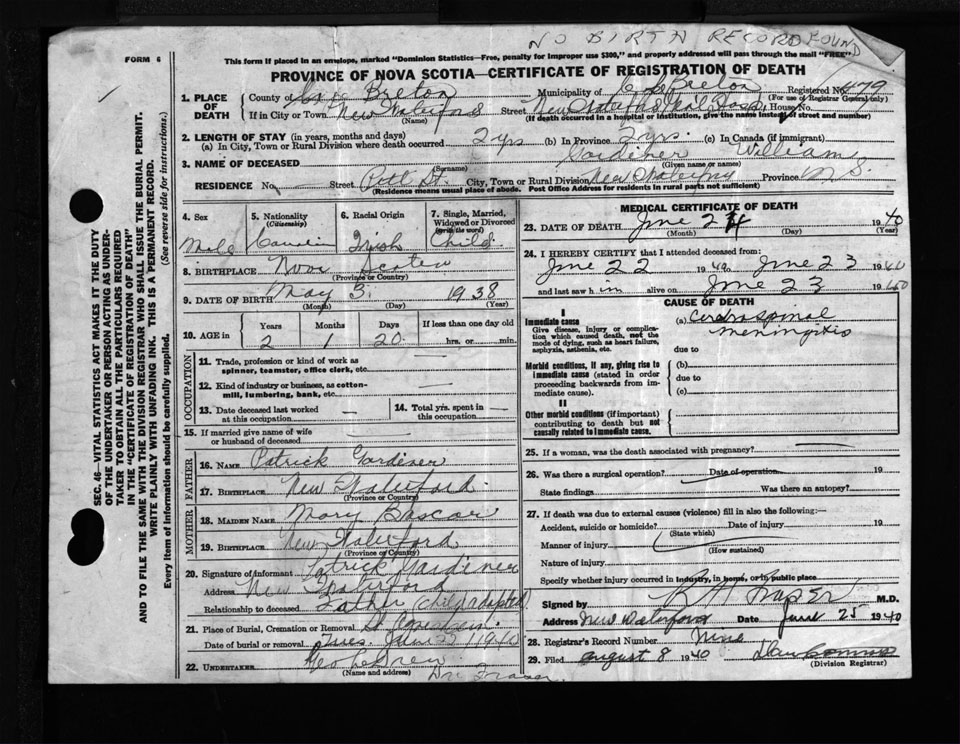 NO BIRTH RECORD FOUND
FORM 6
This form if placed in an envelope, marked "Dominion Statistics—Free, penalty for improper use $300," and properly addressed will pass through the mail "FREE"
PROVINCE OF NOVA SCOTIA—CERTIFICATE OF REGISTRATION OF DEATH
1. PLACE OF DEATH
County of Cape Breton Municipality of C. Breton Registered No. 479
(For use of Registrar General only)
If in City or Town New Waterford Street New Waterford House No.
(Name) (If death occurred in a hospital or institution, give the name instead of street and number)
2. LENGTH OF STAY (in years, months and days)
(a) In City, Town or Rural Division where death occurred 2 yrs (b) In Province 2 yrs. (c) In Canada (if immigrant)
3. NAME OF DECEASED Gardiner William
(Surname) (Given name or names)
RESIDENCE No. Street City, Town or Rural Division New Waterford Province N.S.
(Residence means usual place of abode. Post Office Address for residents in rural parts not sufficient)
SEC. 46—VITAL STATISTICS ACT MAKES IT THE DUTY
OF THE UNDERTAKER OR PERSON ACTING AS UNDER-
TAKER TO OBTAIN ALL THE PARTICULARS REQUIRED
IN THE "CERTIFICATE OF REGISTRATION OF DEATH"
AND TO FILE THE SAME WITH THE DIVISION REGISTRAR WHO SHALL ISSUE THE BURIAL PERMIT.
WRITE PLAINLY WITH UNFADING INK. THIS IS A PERMANENT RECORD.
Every item of information should be carefully supplied. (See reverse side for instructions.)
4. Sex 5. Nationality (Citizenship) 6. Racial Origin 7. Single, Married, Widowed or Divorced (write the word)
Male Irish Child
8. BIRTHPLACE Nova Scotia
(Province or Country)
9. DATE OF BIRTH May 3 1938
(Month) (Day) (Year)
10. AGE in Years Months Days If less than one day old
2 1 20 hrs. or min.
OCCUPATION
11. Trade, profession or kind of work as
spinner, teamster, office clerk, etc. —
12. Kind of industry or business, as cotton-
mill, lumbering, bank, etc. —
13. Date deceased last worked at this occupation — 14. Total yrs. spent in this occupation —
15. If married give name of wife
or husband of deceased —
FATHER
16. NAME Patrick Gardiner
17. BIRTHPLACE New Waterford
(Province or Country)
MOTHER
18. MAIDEN NAME Mary
19. BIRTHPLACE New Waterford
(Province or Country)
20. Signature of informant Patrick Gardiner
Address New Waterford
Relationship to deceased Father child adopted
21. Place of Burial, Cremation or Removal St.
Date of burial or removal Tues. 1940
22. UNDERTAKER
(Name and address)
MEDICAL CERTIFICATE OF DEATH
23. DATE OF DEATH June 24 1940
(Month) (Day) (Year)
24. I HEREBY CERTIFY that I attended deceased from:
June 22 1940 June 23 1940
and last saw him alive on June 23 1940
CAUSE OF DEATH
I
Immediate cause (a) cerebrospinal meningitis
Give disease, injury or complica-
tion which caused death, not the
mode of dying, such as heart failure,
asphyxia, asthenia, etc.
due to
Morbid conditions, if any, giving rise to
immediate cause (stated in order
proceeding backwards from im-
mediate cause).
(b)
due to
(c)
II
Other morbid conditions (if important)
contributing to death but not
causally related to immediate cause.
25. If a woman, was the death associated with pregnancy?
26. Was there a surgical operation? Date of operation 19
State findings Was there an autopsy?
27. If death was due to external causes (violence) fill in also the following:—
Accident, suicide or homicide? Date of injury 19
(State which)
Manner of injury
(How sustained)
Nature of injury
Specify whether injury occurred in industry, in home, or in public place
Signed by M.D.
Address New Waterford Date June 25 1940
28. Registrar's Record Number Nine
29. Filed august 8 1940
(Division Registrar)